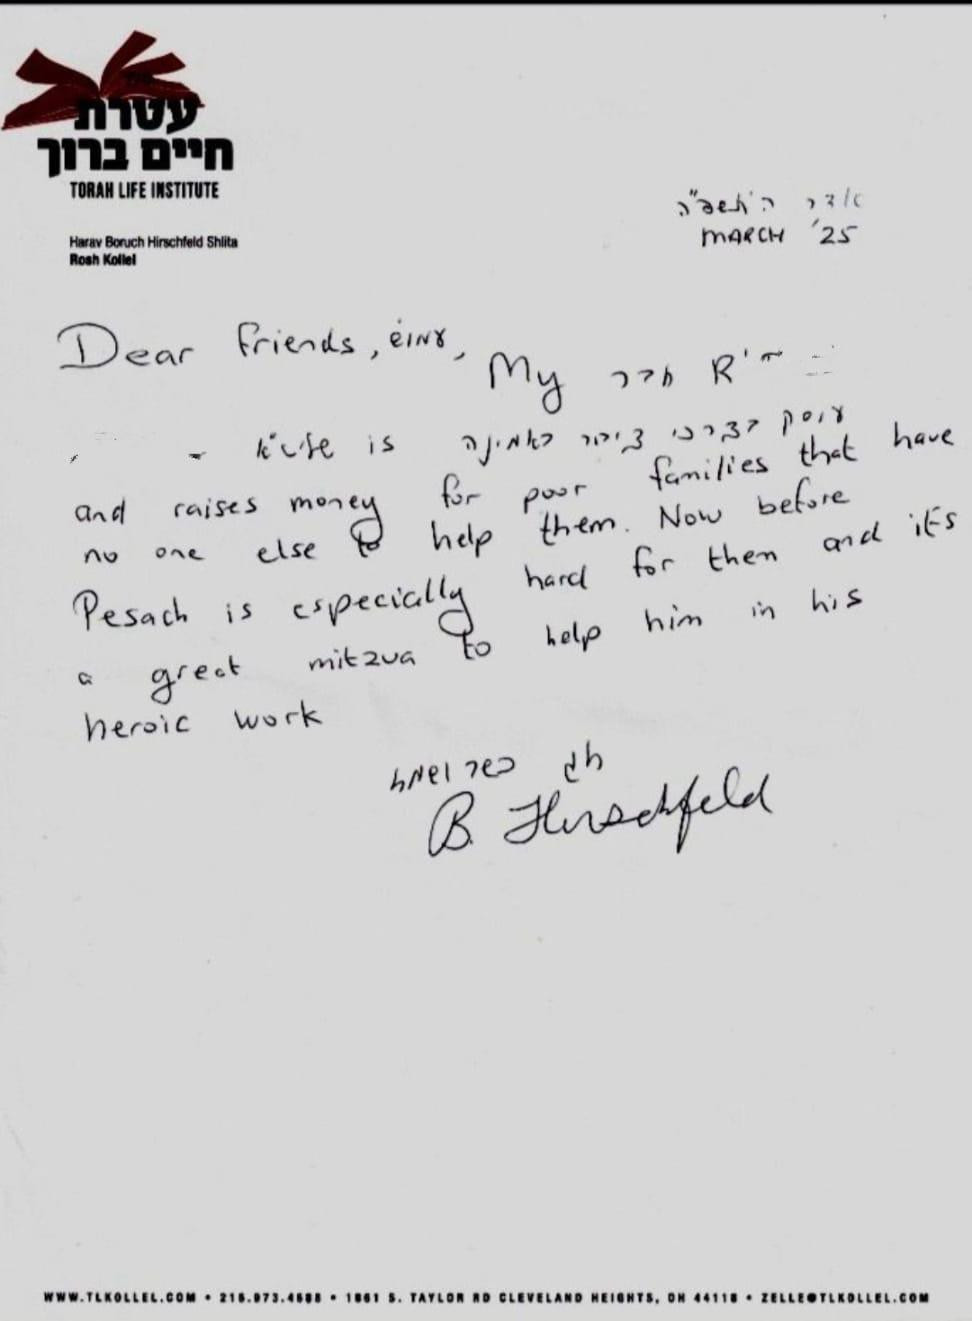 עטרת
חיים ברוך
TORAH LIFE INSTITUTE
Harav Boruch Hirschfeld Shlita
Rosh Kollel
אדר ה'תשפ"ה
MARCH '25
Dear friends, עמו"ש,
My חבר R'
שליט"א is עוסק בצרכי ציבור באמונה
and raises money for poor families that have
no one else to help them. Now before
Pesach is especially hard for them and it's
a great mitzva to help him in his
heroic work
חג כשר ושמח
B. Hirschfeld
WWW.TLKOLLEL.COM • 216.973.4688 • 1861 S. TAYLOR RD CLEVELAND HEIGHTS, OH 44118 • ZELLE@TLKOLLEL.COM